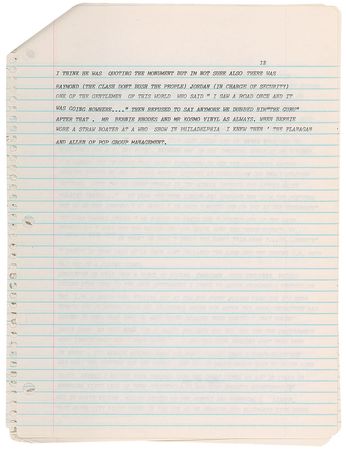 18
I THINK HE WAS QUOTING THE MONUMENT BUT IM NOT SURE ALSO THERE WAS
RAYMOND (THE CLASH DONT BUSH THE PEOPLE) JORDAN (IN CHARGE OF SECURITY)
ONE OF THE GENTLEMEN OF THIS WORLD WHO SAID " I SAW A ROAD ONCE AND IT
WAS GOING NOWHERE...." THEN REFUSED TO SAY ANYMORE WE DUBBED HIM"THE GURU"
AFTER THAT . MR BERNIE RHODES AND MR KOSMO VINYL AS ALWAYS, WHEN BERNIE
WORE A STRAW BOATER AT A WHO SHOW IN PHILADELPHIA I KNEW THEN ' THE FLANAGAN
AND ALLEN OF POP GROUP MANAGEMENT.